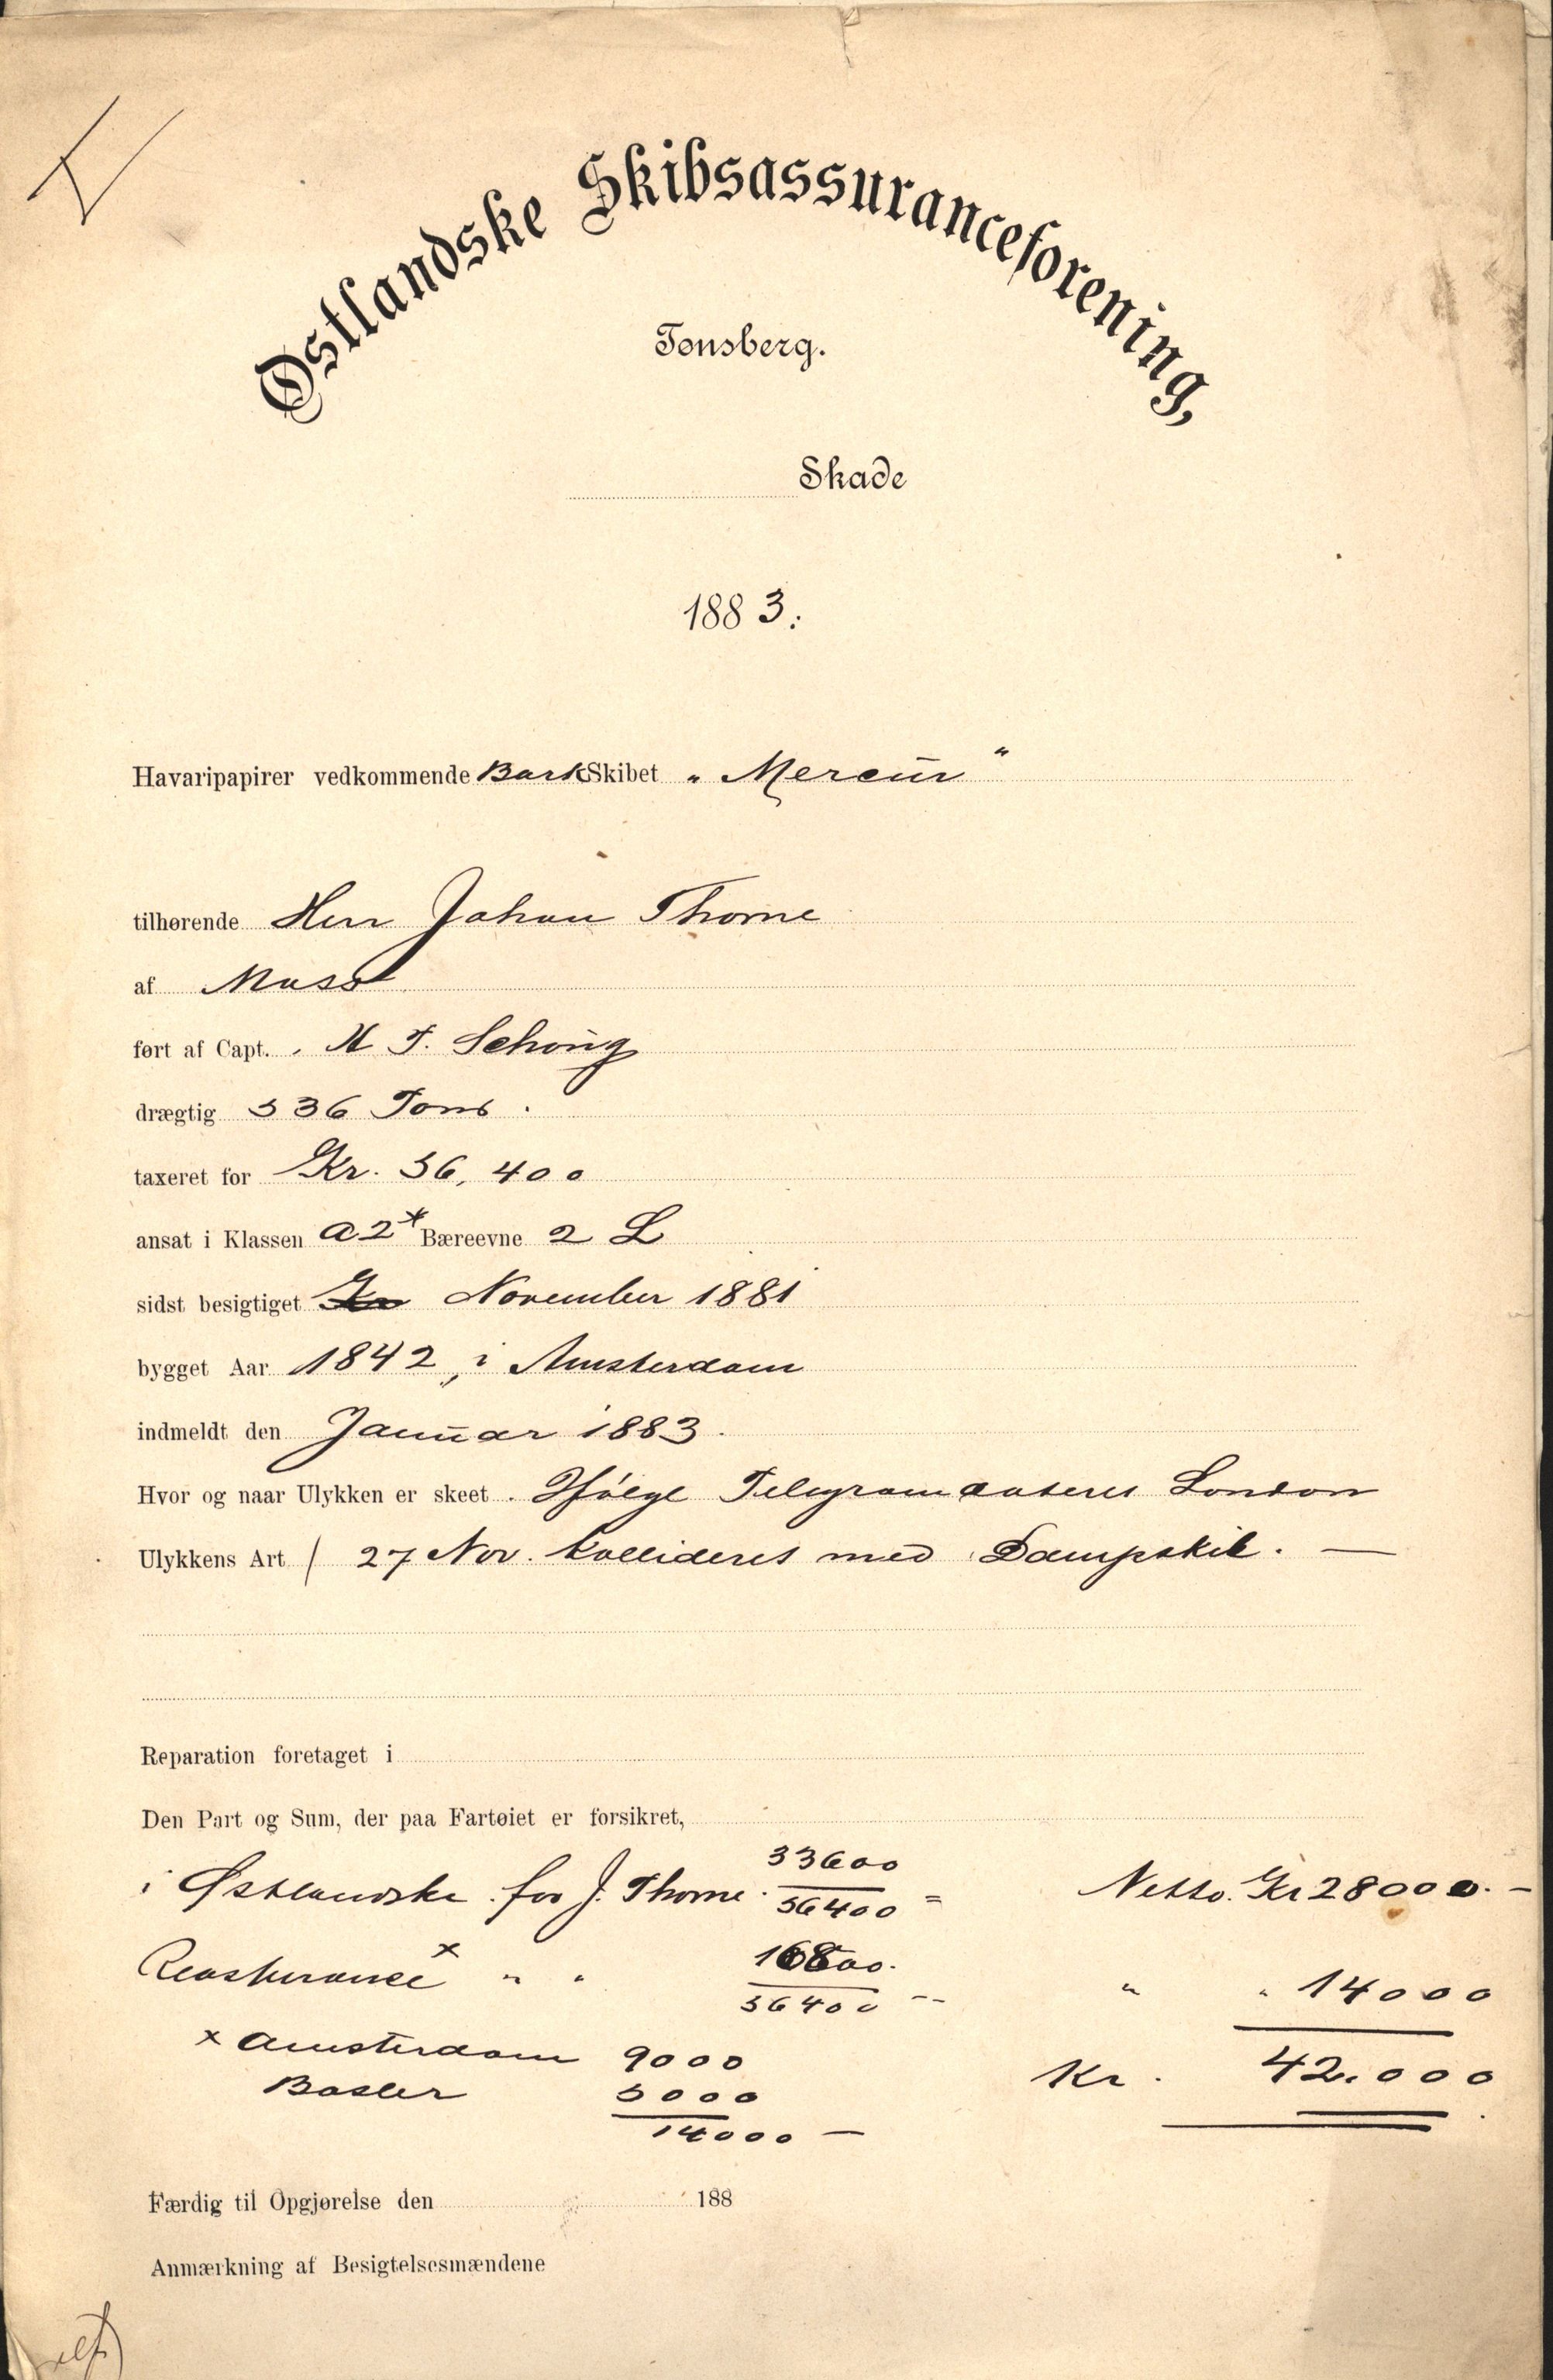 Østlandske Skibsassuranceforening,
Tønsberg.
Skade
1883:
Havaripapirer vedkommende Bark Skibet „ Mercur “
tilhørende Herr Johan Thorne
af Moss
ført af Capt. H F. Schong
drægtig 536 Tons.
taxeret for Kr. 56,400
ansat i Klassen A2* Bæreevne 2 L
sidst besigtiget November 1881
bygget Aar 1842, i Amsterdam
indmeldt den Januar 1883.
Hvor og naar Ulykken er skeet. Ifølge Telegram dateret London
Ulykkens Art / 27 Nov. kollideret med Dampskib. —
Reparation foretaget i
Den Part og Sum, der paa Fartøiet er forsikret,
i Østlandske for J. Thorne 33600/56400 = Netto. Kr 28000. –
Reassurance x " " 16800/56400 -- " " 14000
x Amsterdam 9000
Kr. 42.000
Basler 5000
14000 —
Færdig til Opgjørelse den 188
Anmærkning af Besigtelsesmændene